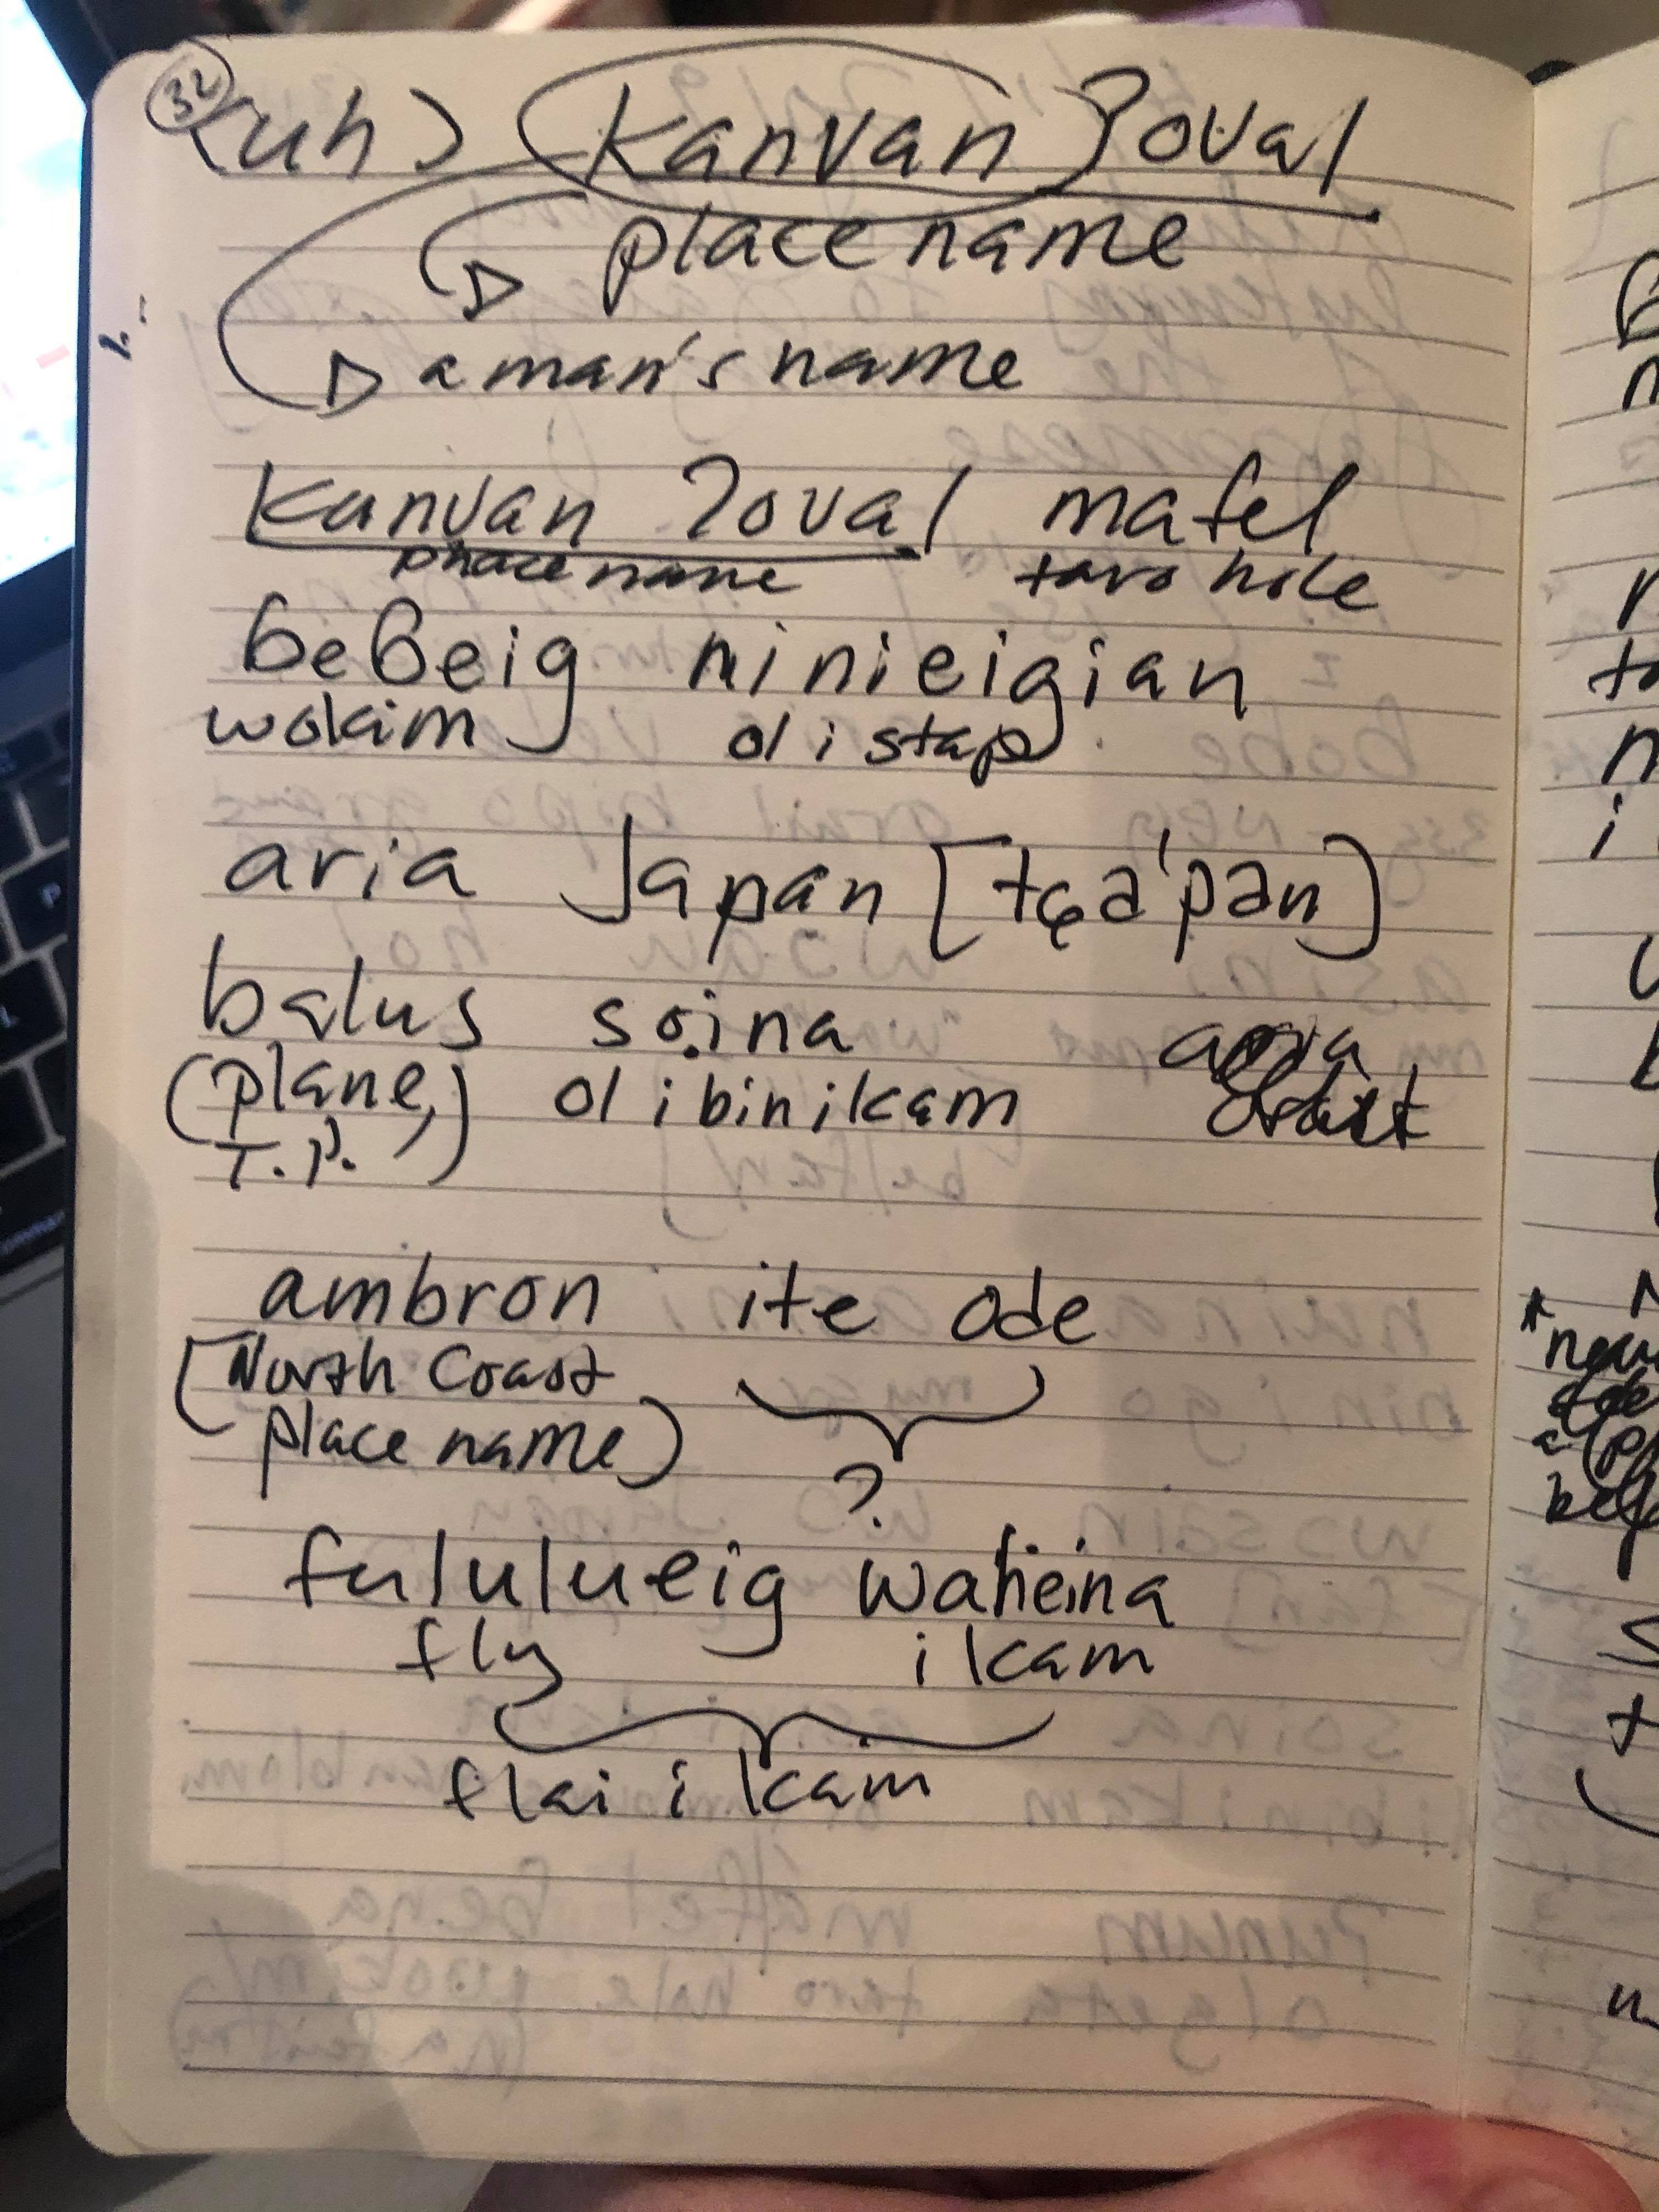 32
(uh) Kanvan ʔoval
place name
a man's name
Kanvan ʔoval mafel
place name taro hole
beβeig ninieigian
wokim ol i stap
aria Japan [tɕə'pən]
balus soina aria
(plane, T.P.) ol i bin i kam
ambron ite ode
[North Coast
place name]
?
fululueig waheina
fly i kam
flai i kam